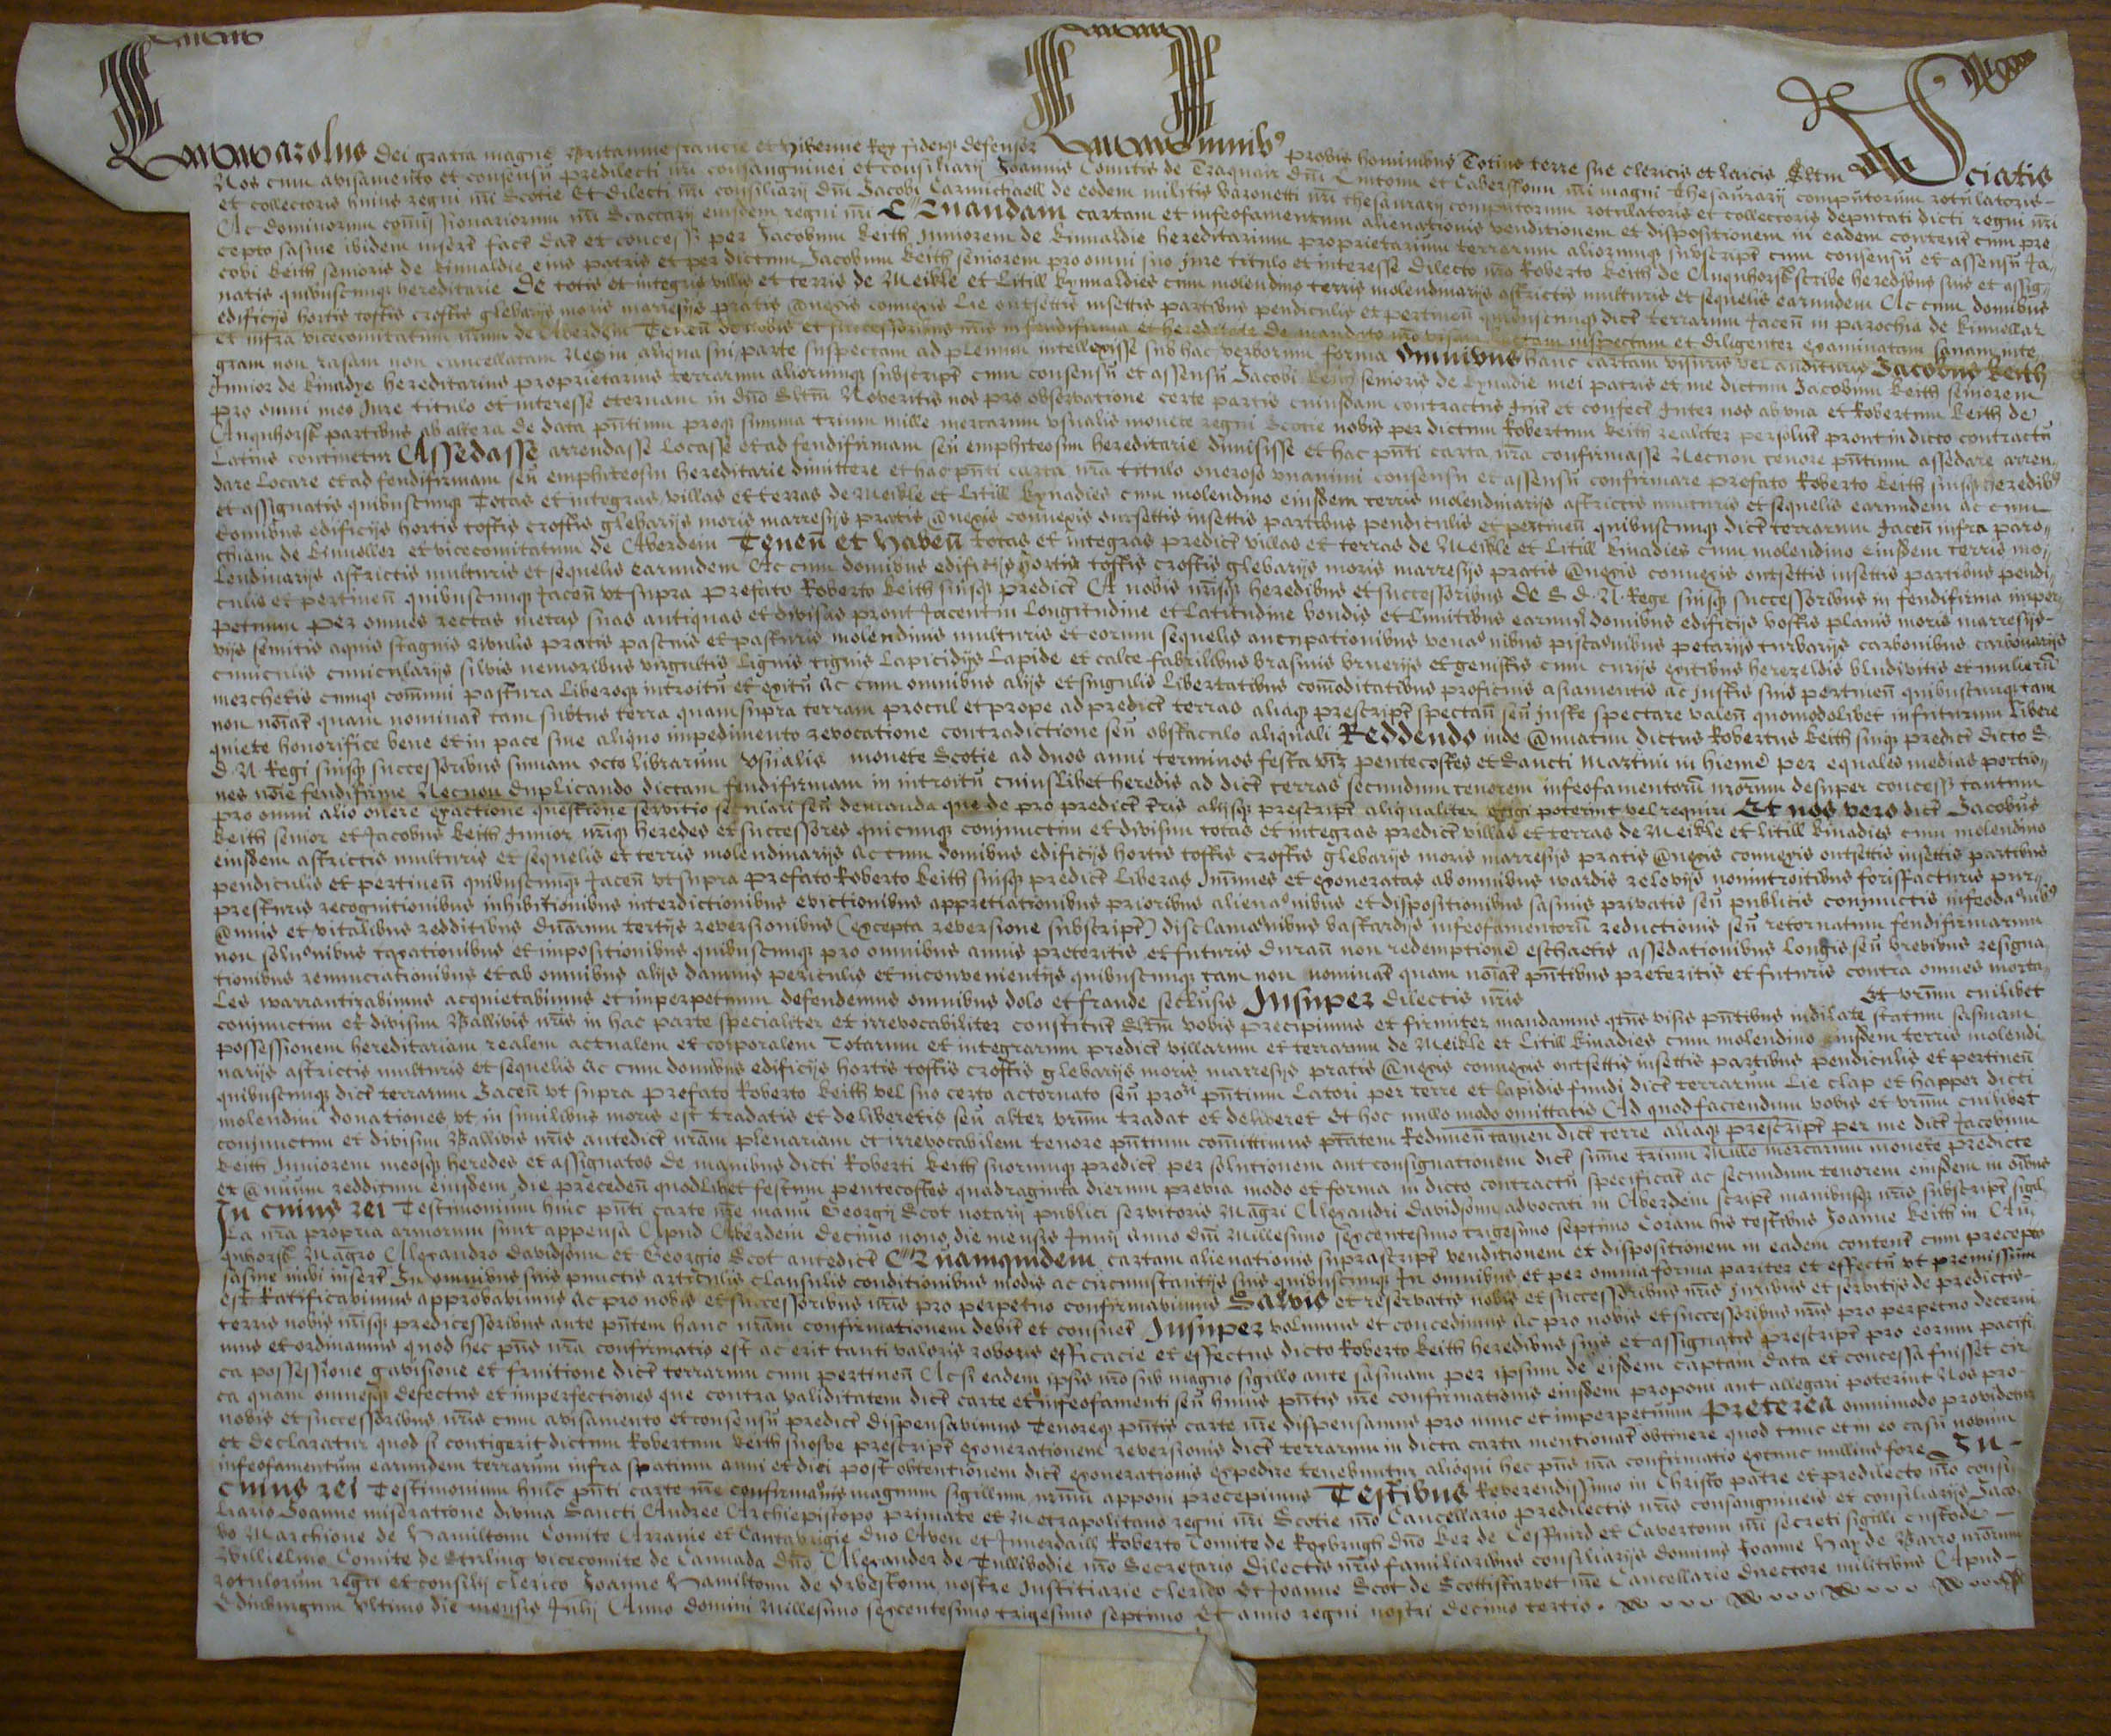 Carolus Dei gratia magne Britannie francie et Hibernie Rex fideiqz defensor Omnibus probis hominibus Totius terre sue clericis et laicis Sltm Sciatis
Nos cum avisamento et consensu predilecti nri consanguinei et consiliarij Joannis Comitis de Traquair dni Lintoun et Caberstoun nri magni Thesaurarij computorum rotulatoris
et collectoris huius regni nri Scotie Et dilecti nri consiliarij dni Jacobi Carmichaell de eodem militis baronetti nri thesaurarij computorum rotulatoris et collectoris deputati dicti regni nri
Ac dominorum comissionariorum nri Scaccarij eiusdem regni nri Quandam cartam et infeofamentum alienationis venditionem et dispositionem in eadem conten cum pre
cepto sasine ibidem insert fact dat et concess per Jacobum Keith Juniorem de kinnaldie hereditarium proprietarium terrarum aliorumqz subscript cum consensu et assensu Ja
cobi Keith senioris de kinnaldie eius patris et per dictum Jacobum Keith seniorem pro omni suo jure titulo et interesse Dilecto nro Roberto Keith de Auquhorsk scribe heredibus suis et assig
natis quibuscunqz hereditarie De totis et integris villis et terris de Meikle et Litill kynnaldies cum molendino terris molendinarijs astrictis multuris et sequelis earundem Ac cum domibus
edificijs hortis toftis croftis glebarijs moris maresijs pratis anexis connexis Lie outsettis insettis partibus pendiculis et pertinen quibuscunqz dict terrarum Jacen in parochia de kinnellar
et infra vicecomitatum nrum de Aberdein Tenen de nobis et successoribus nris in feudifirma et hereditate De mandato nro visam lectam inspectam et diligenter examinatam sanam inte
gram non rasam non cancellatam Neqz in aliqua sui parte suspectam ad plenum intellexisse sub hac verborum forma Omnibus hanc cartam visuris vel audituris Jacobus Keith
Junior de kinadye hereditarius proprietarius terrarum aliorumqz subscript cum consensu et assensu Jacobi Keith senioris de kynadie mei patris et me dictum Jacobum Keith seniorem
pro omni meo Jure titulo et interesse eternam in dno Sltm Noveritis nos pro observatione certe partis cuiusdam contractus Init et confect Inter nos ab una et Robertum Keith de
Auquhorsk partibus ab altera de data pntium proqz summa trium mille mercarum usualis monete regni Scotie nobis per dictum Robertum Keith realiter persolut prout in dicto contractu
Latius continetur Assedasse arrendasse Locasse et ad feudifirmam seu emphiteosim hereditarie dimisisse et hac pnti carta nra confirmasse Necnon tenore pntium assedare arren
dare Locare et ad feudifirmam seu emphiteosin hereditarie dimittere et hac pnti carta nra titulo oneroso unanimi consensu et assensu confirmare prefato Roberto Keith suisqz heredibus
et assignatis quibuscunqz Totas et integras villas et terras de Meikle et Litill kynadies cum molendino eiusdem terris molendinarijs astrictis multuris et sequelis earundem ac cum
domibus edificijs hortis toftis croftis glebarijs moris marresijs pratis anexis connexis outsettis insettis partibus pendiculis et pertinen quibuscunqz dict terrarum Jacen infra paro
chiam de kinneller et vicecomitatum de Aberdein Tenen et Haben totas et integras predict villas et terras de Meikle et Litill kinadies cum molendino eiusdem terris mo
lendinarijs astrictis multuris et sequelis earundem Ac cum domibus edificijs hortis toftis croftis glebarijs moris marresijs pratis anexis connexis outsettis insettis partibus pendi
culis et pertinen quibuscunqz Jacen ut supra Prefato Roberto Keith suisqz predict A nobis nrisqz heredibus et successoribus De S. d. N. Rege suisqz successoribus in feudifirma imper
petuum Per omnes rectas metas suas antiquas et divisas prout Jacent in Longitudine et Latitudine bondis et Limitibus earund domibus edificijs boscis planis moris marresijs
vijs semitis aquis stagnis rivulis pratis pascuis et pasturis molendinis multuris et eorum sequelis aucupationibus venaonibus piscaonibus petarijs turbarijs carbonibus carbonarijs
cuniculis cuniculariis silvis nemoribus virgultis Lignis tignis Lapicidijs Lapide et calce fabrilibus brasinis bruerijs et genistis cum curijs exitibus herezeldis bludivitis et mulierum
merchetis cumqz comuni pastura Liberoqz introitu et exitu Ac cum omnibus alijs et singulis Libertatibus comoditatibus proficuis asiamentis ac justis suis pertinen quibuscunqz tam
non noiat quam nominat tam subtus terra quam supra terram procul et prope ad predict terras aliaqz prescript spectan seu juste spectare valen quomodolibet in futurum Libere
quiete honorifice bene et in pace sine aliquo impedimento revocatione contradictione seu obstaculo aliquali Reddendo inde anuatim dictus Robertus Keith suiqz predict dicto S.
d. N. Regi suisqz successoribus sumam octo librarum usualis monete Scotie ad duos anni terminos festa viz pentecostes et Sancti Martini in hieme per equales medias portio
nes noie feudifirme Necnon duplicando dictam feudifirmam in introitu cuiuslibet heredis ad dict terras secundum tenorem infeofamentoru nrorum desuper concess tantum
pro omni alio onere exactione questione servitio seculari seu demanda que de pro predict terris alijsqz prescript aliqualiter exigi poterint vel requiri Et nos vero dict Jacobus
Keith senior et Jacobus Keith Junior nriqz heredes et successores quicunqz conjunctim et divisim totas et integras predict villas et terras de Meikle et litill kinadies cum molendino
eiusdem astrictis multuris et sequelis et terris molendinarijs ac cum domibus edificijs hortis toftis croftis glebarijs moris marresijs pratis anexis connexis outsettis insettis partibus
pendiculis et pertinen quibuscunqz Jacen ut supra Prefato Roberto Keith suisqz predict Liberas Imunes et exoneratas ab omnibus wardis relevijs nonintroitibus forisfacturis pur
presturis recognitionibus inhibitionibus interdictionibus evictionibus appretiationibus prioribus alienaonibus et dispositionibus sasinis privatis seu publicis conjunctis infeodaonibus
anuis et vitalibus redditibus duarum tertijs reversionibus (excepta reversione subscript) disclamaonibus bastardijs infeofamentoru reductionis seu retornatum feudifirmarum
non soluonibus taxationibus et impositionibus quibuscunqz pro omnibus annis preteritis et futuris duran non redemptione eschaetis assedationibus longis seu brevibus resigna
tionibus renunciationibus et ab omnibus alijs damnis periculis et inconvenientijs quibuscunqz tam non nominat quam noiat pntibus preteritis et futuris contra omnes morta
les warrantizabimus acquietabimus et imperpetuum defendemus omnibus dolo et fraude seclusis Insuper dilectis nris Et vrum cuilibet
conjunctim et divisim Ballivis nris in hac parte specialiter et irrevocabiliter constitut Sltm vobis precipimus et firmiter mandamus qtus visis pntibus indilate statum sasinam
possessionem hereditariam realem actualem et corporalem Totarum et integrarum predict villarum et terrarum de Meikle et Litill kinadies cum molendino eiusdem terris molendi
narijs astrictis multuris et sequelis ac cum domibus edificijs hortis toftis croftis glebarijs moris marresijs pratis anexis connexis outsettis insettis partibus pendiculis et pertinen
quibuscunqz dict terrarum Jacen ut supra Prefato Roberto Keith vel suo certo actornato seu prori pntium Latori per terre et lapidis fundi dict terrarum Lie clap et happer dicti
molendini donationes ut in similibus moris est tradatis et deliberetis seu alter vrum tradat et deliberet Et hoc nullo modo omittatis Ad quod faciendum vobis et vrum cuilibet
conjunctim et divisim Ballivis nris antedict nram plenariam et irrevocabilem tenore pntium comittimus ptatem Redimen tamen dict terre aliaqz prescript per me dict Jacobum
Keith Juniorem meosqz heredes et assignatos de manibus dicti Roberti Keith suorumqz predict per solutionem aut consignationem dict sume trium Mille mercarum monete predicte
et anuum redditum eiusdem die preceden quodlibet festum pentecostes quadraginta dierum previa modo et forma in dicto contractu specificat ac secundum tenorem eiusdem in oibus
In cuius rei Testimonium huic pnti carte nre manu Georgij Scot notarij publici servitoris Magri Alexandri davidsoun advocati in Aberdein script manibusqz nris subscript sigil
la nra propria armorum sunt appensa Apud Aberdein decimo nono die mensis Junij anno dni Millesimo sexcentesimo trigesimo septimo Coram his testibus Joanne Keith in Au
quhorsk Magro Alexandro davidsoun et Georgio Scot antedict Quamquidem cartam alienationis suprascript venditionem et dispositionem in eadem content cum precepto
sasine inibi insert In omnibus suis punctis articulis clausulis conditionibus modis ac circumstantijs suis quibuscunqz In omnibus et per omnia forma pariter et effectu ut premissum
est Ratificavimus approbavimus ac pro nobis et successoribus nris pro perpetuo confirmavimus Salvis et reservatis nobis et successoribus nris juribus et servitijs de predictis
terris nobis nrisqz predicessoribus ante pntem hanc nram confirmationem debit et consuet Insuper volumus et concedimus ac pro nobis et successoribus nris pro perpetuo decerni
mus et ordinamus quod hec pns nra confirmatio est ac erit tanti valoris roboris efficacie et effectus dicto Roberto Keith heredibus suis et assignatis prescript pro eorum pacifi
ca possessione gavisione et fruitione dict terrarum cum pertinen Ac si eadem ipsis nro sub magno sigillo ante sasinam per ipsum de eisdem captam data et concessa fuisset cir
ca quam omnesqz defectus et imperfectiones que contra validitatem dict carte et infeofamenti seu huius pntis nre confirmationis eiusdem proponi aut allegari poterint Nos pro
nobis et successoribus nris cum avisamento et consensu predict dispensavimus Tenoreqz pntis carte nre dispensamus pro nunc et imperpetuum Preterea omnimodo providetur
et declaratur quod si contigerit dictum Robertum Keith suosve prescript exonerationem reversionis dict terrarum in dicta carta mentionat obtinere quod tunc et in eo casu novum
infeofamentum earundem terrarum infra spatium anni et diei post obtentionem dict exonerationis expedire tenebuntur alioqui hec pns nra confirmatio extunc nullius fore In
cuius rei Testimonium huic pnti carte nre confirmaonis magnum sigillum nrum apponi precepimus Testibus Reverendissimo in Christo patre et predilecto nro consi
liario Joanne miseratione divina Sancti Andree Archiepiscopo primate et Metrapolitano regni nri Scotie nro Cancellario Predilectis nris consanguineis et consiliarijs Jaco
bo Marchione de Hamiltoun Comite Arranie et Cantabrigie dno Aven et Innerdaill Roberto Comite de Roxbrugh dno Ker de Cesfuird et Cavertoun nri secreti sigilli custode
Willielmo Comite de Striling vicecomite de Cannada dno Alexander de Tullibodie nro Secretario Dilectis nris familiaribus consiliarijs dominis Joanne Hay de Barro nrorum
rotulorum regri et consilij clerico Joanne Hamiltoun de Orbestoun nostre Justitiarie clerico Et Joanne Scot de Scottistarvet nre Cancellarie directore militibus Apud
Edinburgum ultimo die mensis Julij Anno domini Millesimo sexcentesimo trigesimo septimo Et anno regni nostri decimo tertio.